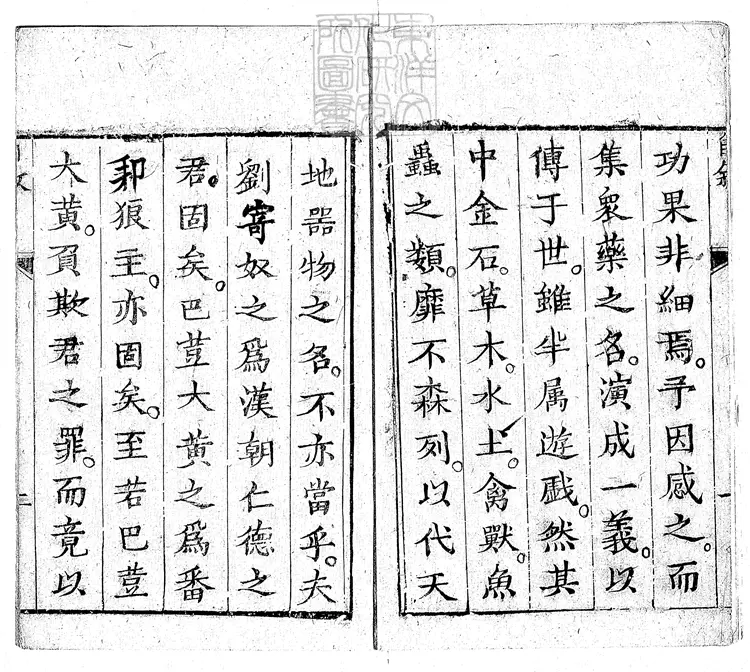 東洋文
化研究
所圖書
功果非細焉。予因感之。而
集衆藥之名。演成一義。以
傳于世。雖半属遊戱。然其
中金石。草木。水土。禽獸。魚
蟲之類。靡不森列。以代天
地器物之名。不亦當乎。夫
劉寄奴之爲漢朝仁德之
君。固矣。巴荳大黃之爲番
邦狼主。亦固矣。至若巴荳
大黃。負欺君之罪。而竟以